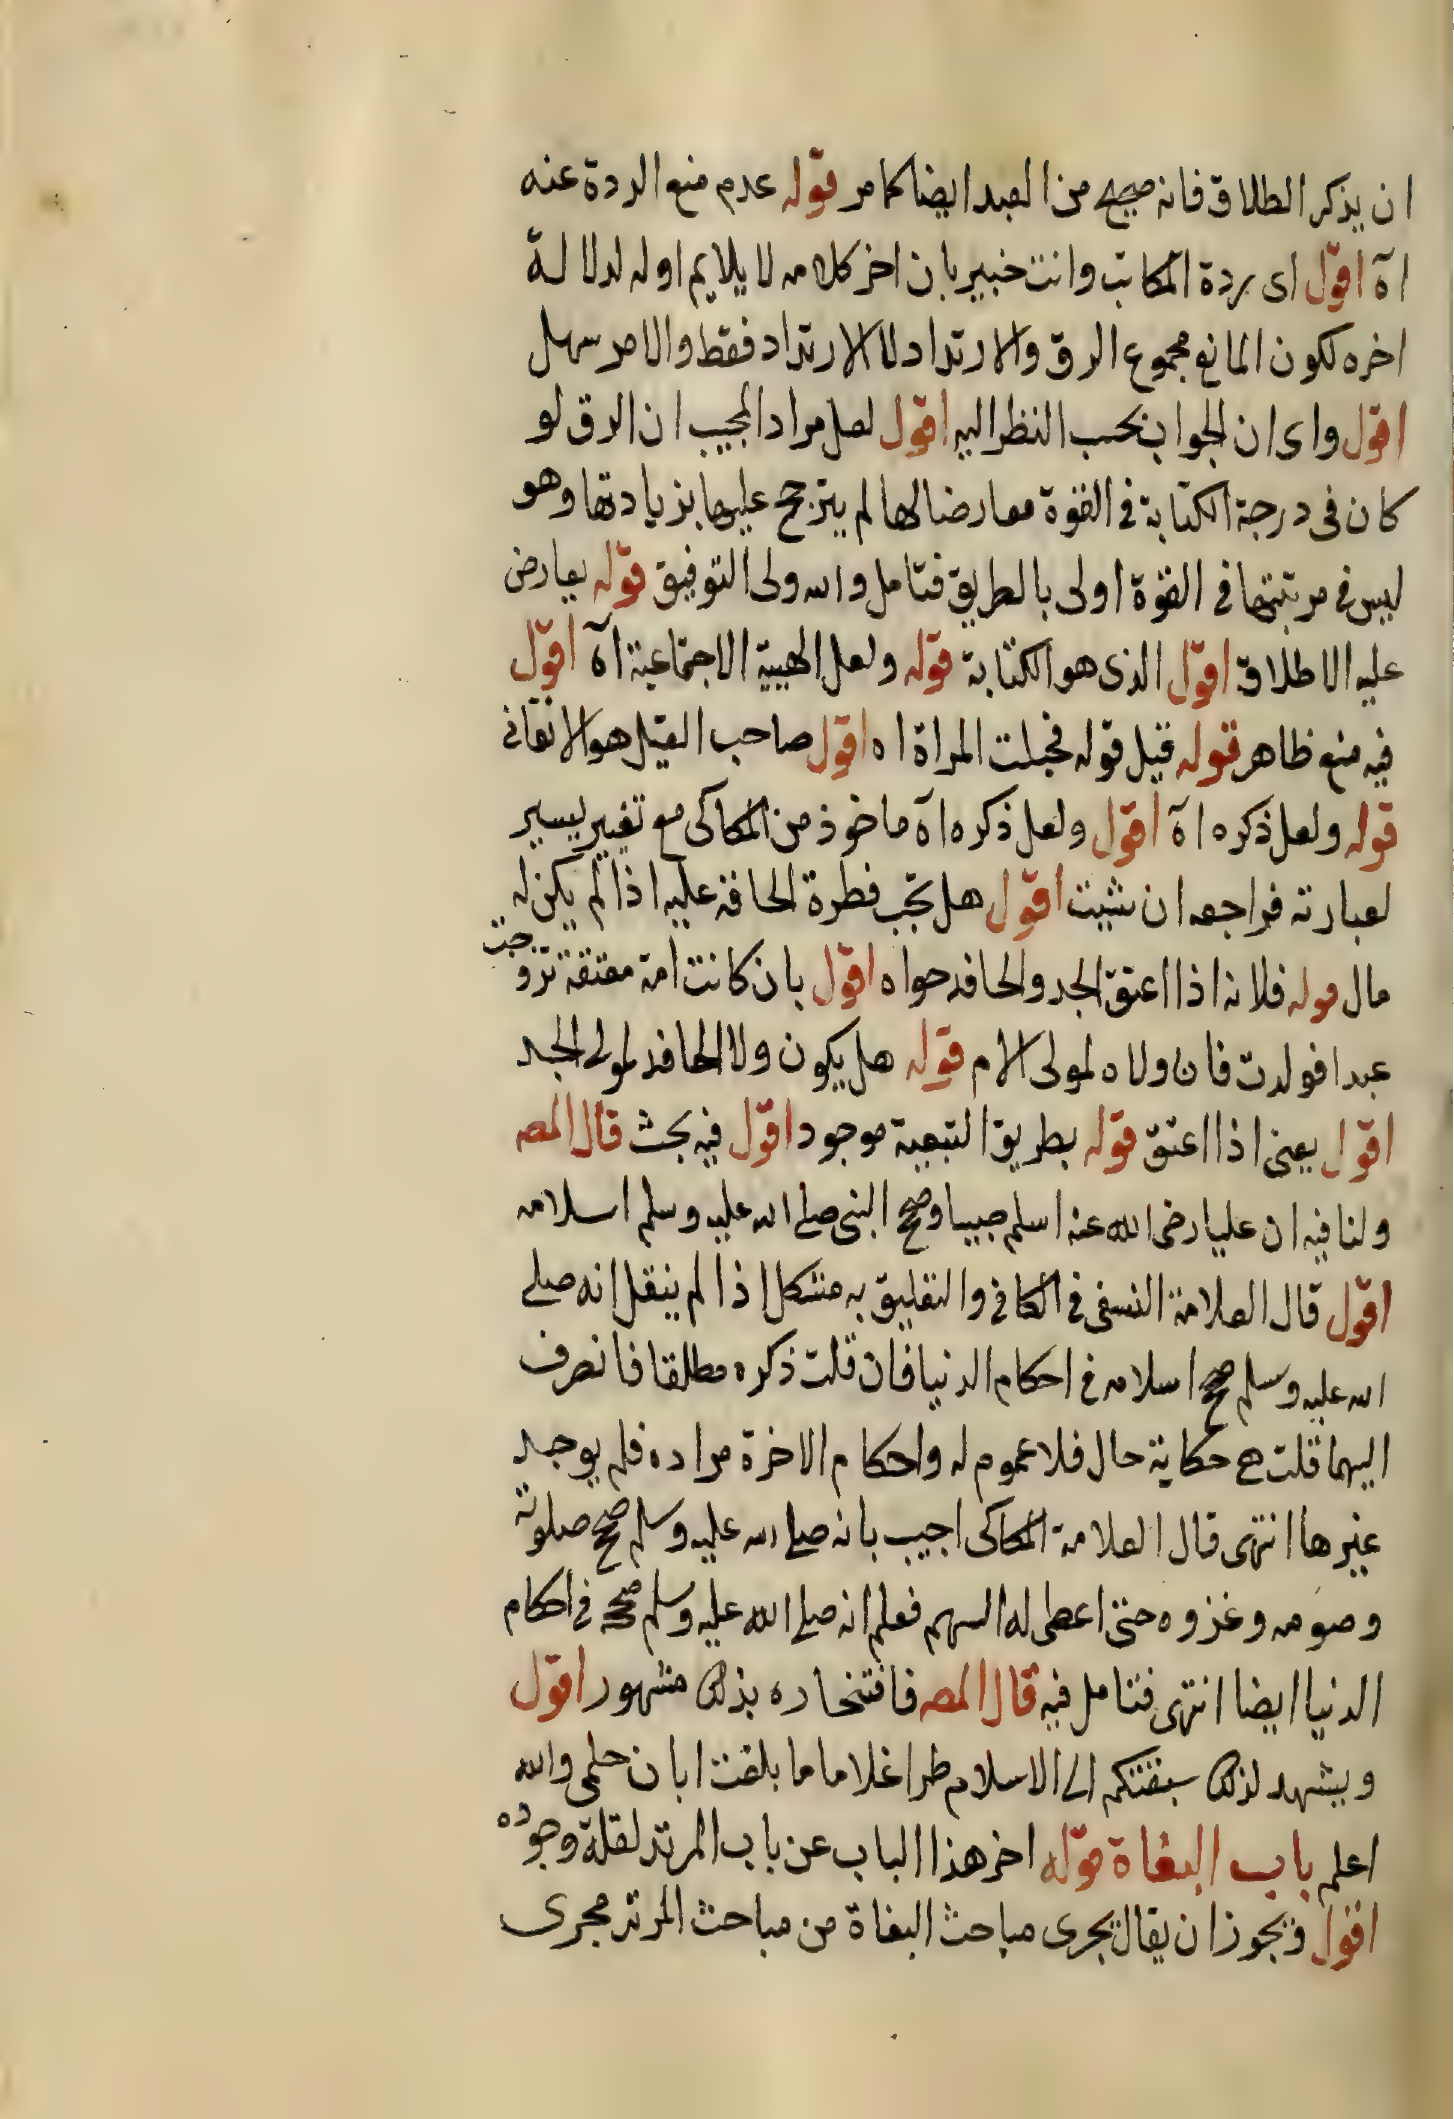 ان يذكر الطلاق فانه صحيح من العبد ايضا كما مر قوله عدم منع الردة عنه
اه اقول اى ردة المكاتب وانت خبير بان اخر كلامه لا يلايم اوله لدلالة
اخره لكون المانع مجموع الرق والارتداد لا الارتداد فقط والامر سهل
اقول واى ان الجواب بحسب النظر اليه اقول لعل مراد المجيب ان الرق لو
كان فى درجة الكتابة فى القوة معارضا لها لم يترجح عليها بزيادتها وهو
ليس فى مرتبتها فى القوة اولى بالطريق فتامل والله ولى التوفيق قوله يعارض
عليه الاطلاق اقول الذى هو الكتابة قوله ولعل الهيية الاجتماعية آه اقول
فيه منع ظاهر قوله قيل قوله فحبلت المراة اه اقول صاحب القيل هو الاتقانى
قوله ولعل ذكره اه اقول ولعل ذكره اه ماخوذ من الكاكى مع تغيير يسير
لعبارته فراجعه ان شيت اقول هل تجب فطرة الحافد عليه اذا لم يكن له
مال قوله فلانه اذا اعتق الجد والحافد حواه اقول بان كانت امة معتقة تزوجت
عبدا فولدت فان ولاه لمولى الام قوله هل يكون ولا الحافد لمولى الجد
اقول يعنى اذا اعتق قوله بطريق التبعية موجود اقول فيه بحث قال المصه
ولنا فيه ان عليا رضى الله عنه اسلم صبيا وصحح النبى صلى الله عليه وسلم اسلامه
اقول قال العلامة النسفى فى الكافى والتعليق به مشكل اذا لم ينقل انه صلى
الله عليه وسلم صحح اسلامه فى احكام الدنيا فان قلت ذكره مطلقا فانصرف
اليهما قلت هى حكاية حال فلا عموم له واحكام الاخرة مراده فلم يوجد
غيرها انتهى قال العلامة الكاكى اجيب بانه صلى الله عليه وسلم صحح صلوته
وصومه وغزوه حتى اعطى له السهم فعلم انه صلى الله عليه وسلم صحح فى احكام
الدنيا ايضا انتهى فتامل فيه قال المصه فافتخاره بذلك مشهور اقول
ويشهد لذلك سبقتكم الى الاسلام طرا غلاما ما بلغت ابان حلمى والله
اعلم باب البغاة قوله اخر هذا الباب عن باب المرتد لقلة وجوده
اقول وتجوز ان يقال تجرى مباحث البغاة من مباحث المرتد مجرى